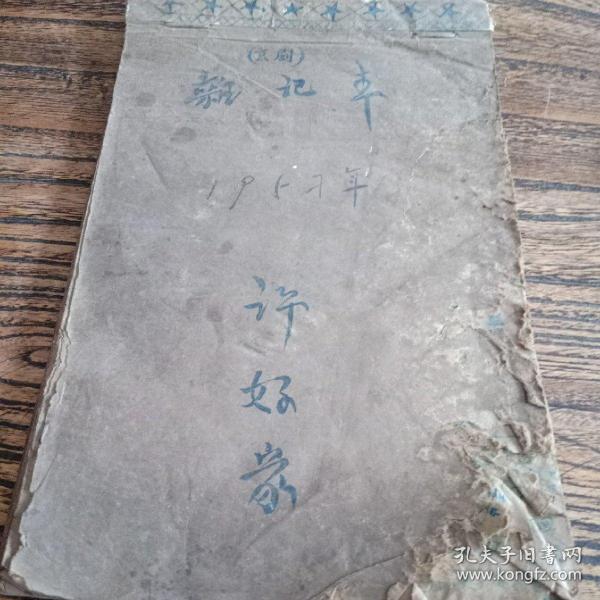 (京剧)
记本
1957年
许
好
家
孔夫子旧書网
www.kongfz.com